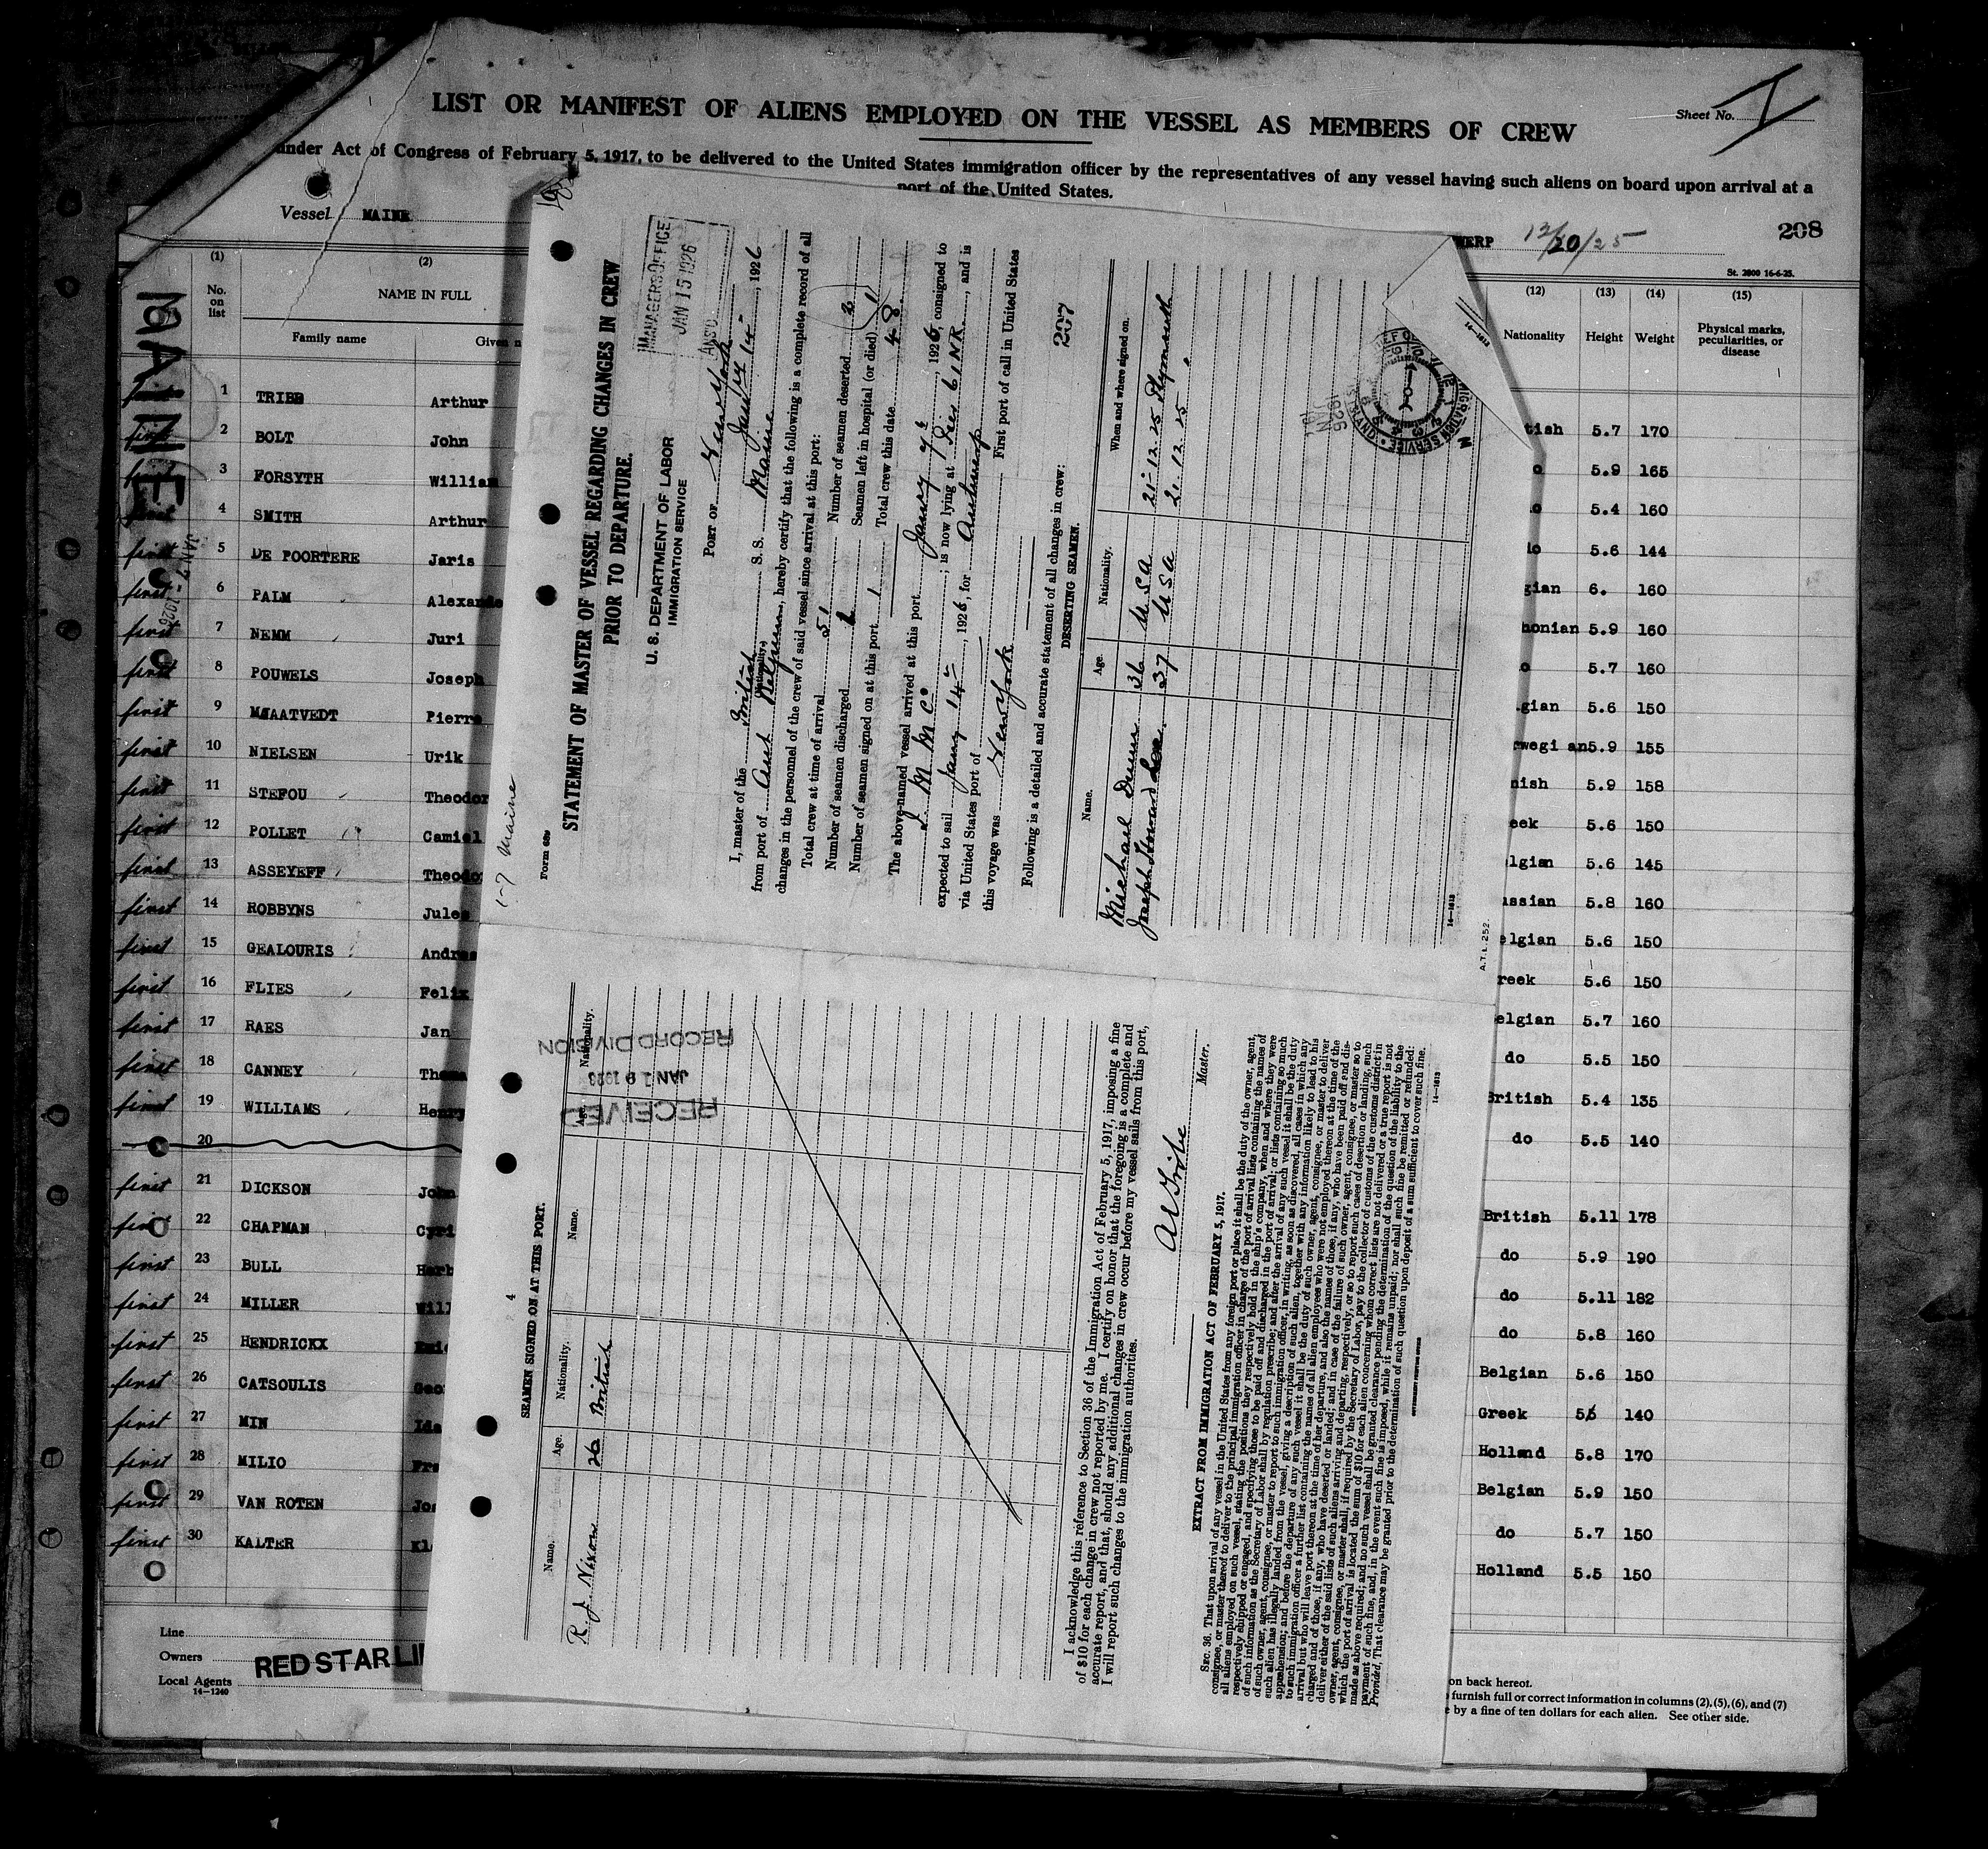 LIST OR MANIFEST OF ALIENS EMPLOYED ON THE VESSEL AS MEMBERS OF CREW
Sheet No. I
under Act of Congress of February 5, 1917, to be delivered to the United States immigration officer by the representatives of any vessel having such aliens on board upon arrival at a
port of the United States.
Vessel MAINE
WERP 12/20/25
208
St. 2800 16-6-25.
(1) (2) (12) (13) (14) (15)
No. on list NAME IN FULL Nationality Height Weight Physical marks, peculiarities, or disease
Family name Given n
MAINE
JAN 7 - 1926
first 1 TRIBB Arthur tish 5.7 170
first 2 BOLT John o 5.9 165
first 3 FORSYTH William o 5.4 160
first 4 SMITH Arthur do 5.6 144
first 5 DE POORTERE Jaris gian 6. 160
first 6 PALM Alexande honian 5.9 160
first 7 NEMM Juri o 5.7 160
first 8 POUWELS Joseph gian 5.6 150
first 9 MAATVEDT Pierre rwegian 5.9 155
first 10 NIELSEN Urik nish 5.9 158
first 11 STEFOU Theodor eek 5.6 150
first 12 POLLET Camiel lgian 5.6 145
first 13 ASSEYEFF Theodo ussian 5.8 160
first 14 ROBBYNS Jules elgian 5.6 150
first 15 GEALOURIS Andreas reek 5.6 150
first 16 FLIES Felix elgian 5.7 160
first 17 RAES Jan do 5.5 150
first 18 CANNEY Thoma British 5.4 135
first 19 WILLIAMS Henry do 5.5 140
20
first 21 DICKSON John British 5.11 178
first 22 CHAPMAN Cyri do 5.9 190
first 23 BULL Herb do 5.11 182
first 24 MILLER Will do 5.8 160
first 25 HENDRICKX Belgian 5.6 150
first 26 CATSOULIS Geo Greek 5.6 140
first 27 MIN Ide Holland 5.8 170
first 28 MILIO Fra Belgian 5.9 150
first 29 VAN ROTEN Jos do 5.7 150
first 30 KALTER Kl Holland 5.5 150
Line
Owners RED STAR LI
Local Agents
14-1240
on back hereof.
furnish full or correct information in columns (2), (5), (6), and (7)
e by a fine of ten dollars for each alien. See other side.
1-7 Maine
Form 689
STATEMENT OF MASTER OF VESSEL REGARDING CHANGES IN CREW
PRIOR TO DEPARTURE.
U. S. DEPARTMENT OF LABOR
IMMIGRATION SERVICE
MANAGERS OFFICE
JAN 15 1926
ANS'D
PORT OF New York
Jany 14, 1926
I, master of the British S. S. Maine
(Nationality.)
from port of Ant Belgium, hereby certify that the following is a complete record of all
changes in the personnel of the crew of said vessel since arrival at this port:
Total crew at time of arrival 51 Number of seamen deserted 2
Number of seamen discharged 2 Seamen left in hospital (or died) 1
Number of seamen signed on at this port 1 Total crew this date 48.
The above-named vessel arrived at this port Jany 7th, 1926, consigned to
I M M Co; is now lying at Pier 61 NR, and is
expected to sail Jany 14, 1926, for Antwerp
via United States port of First port of call in United States
this voyage was New York
Following is a detailed and accurate statement of all changes in crew:
207
DESERTING SEAMEN.
Name. Age. Nationality. When and where signed on.
Michael Dunn 36 USA 25-12.25 Plymouth
Joseph Howard Lee. 37 USA 2.12.25 "
IMMIGRATION SERVICE
1926
JAN
14-1613
14-1613
A.T.L. 252
4
SEAMEN SIGNED ON AT THIS PORT.
Name. Age. Nationality. Name. Age. Nationality.
R. J. Nixon 26 British
RECEIVED
JAN 19 1926
RECORD DIVISION
I acknowledge this reference to Section 36 of the Immigration Act of February 5, 1917, imposing a fine
of $10 for each change in crew not reported by me. I certify on honor that the foregoing is a complete and
accurate report, and that, should any additional changes in crew occur before my vessel sails from this port,
I will report such changes to the immigration authorities.
Master.
EXTRACT FROM IMMIGRATION ACT OF FEBRUARY 5, 1917.
SEC. 36. That upon arrival of any vessel in the United States from any foreign port or place it shall be the duty of the owner, agent,
consignee, or master thereof to deliver to the principal immigration officer in charge of the port of arrival lists containing the names of
all aliens employed on such vessel, stating the positions they respectively hold in the ship's company, when and where they were
respectively shipped or engaged, and specifying those to be paid off and discharged in the port of arrival; or lists containing so much
of such information as the Secretary of Labor shall by regulation prescribe; and after the arrival of any such vessel it shall be the duty
of such owner, agent, consignee, or master to report to such immigration officer, in writing, as soon as discovered, all cases in which any
such alien has illegally landed from the vessel, giving a description of such alien, together with any information likely to lead to his
apprehension; and before the departure of any such vessel it shall be the duty of such owner, agent, consignee, or master to deliver
to such immigration officer a further list containing the names of all alien employees who were not employed thereon at the time of the
arrival but who will leave port thereon at the time of her departure, and also the names of those, if any, who have been paid off and dis-
charged and of those, if any, who have deserted or landed; and in case of the failure of such owner, agent, consignee, or master so to
deliver either of the said lists of such aliens arriving and departing, respectively, or so to report such cases of desertion or landing, such
owner, agent, consignee, or master shall, if required by the Secretary of Labor, pay to the collector of customs of the customs district in
which the port of arrival is located the sum of $10 for each alien concerning whom correct lists are not delivered or a true report is not
made as above required; and no such vessel shall be granted clearance pending the determination of the question of the liability to the
payment of such fine, and, in the event such fine is imposed, while it remains unpaid; nor shall such fine be remitted or refunded:
Provided, That clearance may be granted prior to the determination of such question upon deposit of a sum sufficient to cover such fine.
14-1613